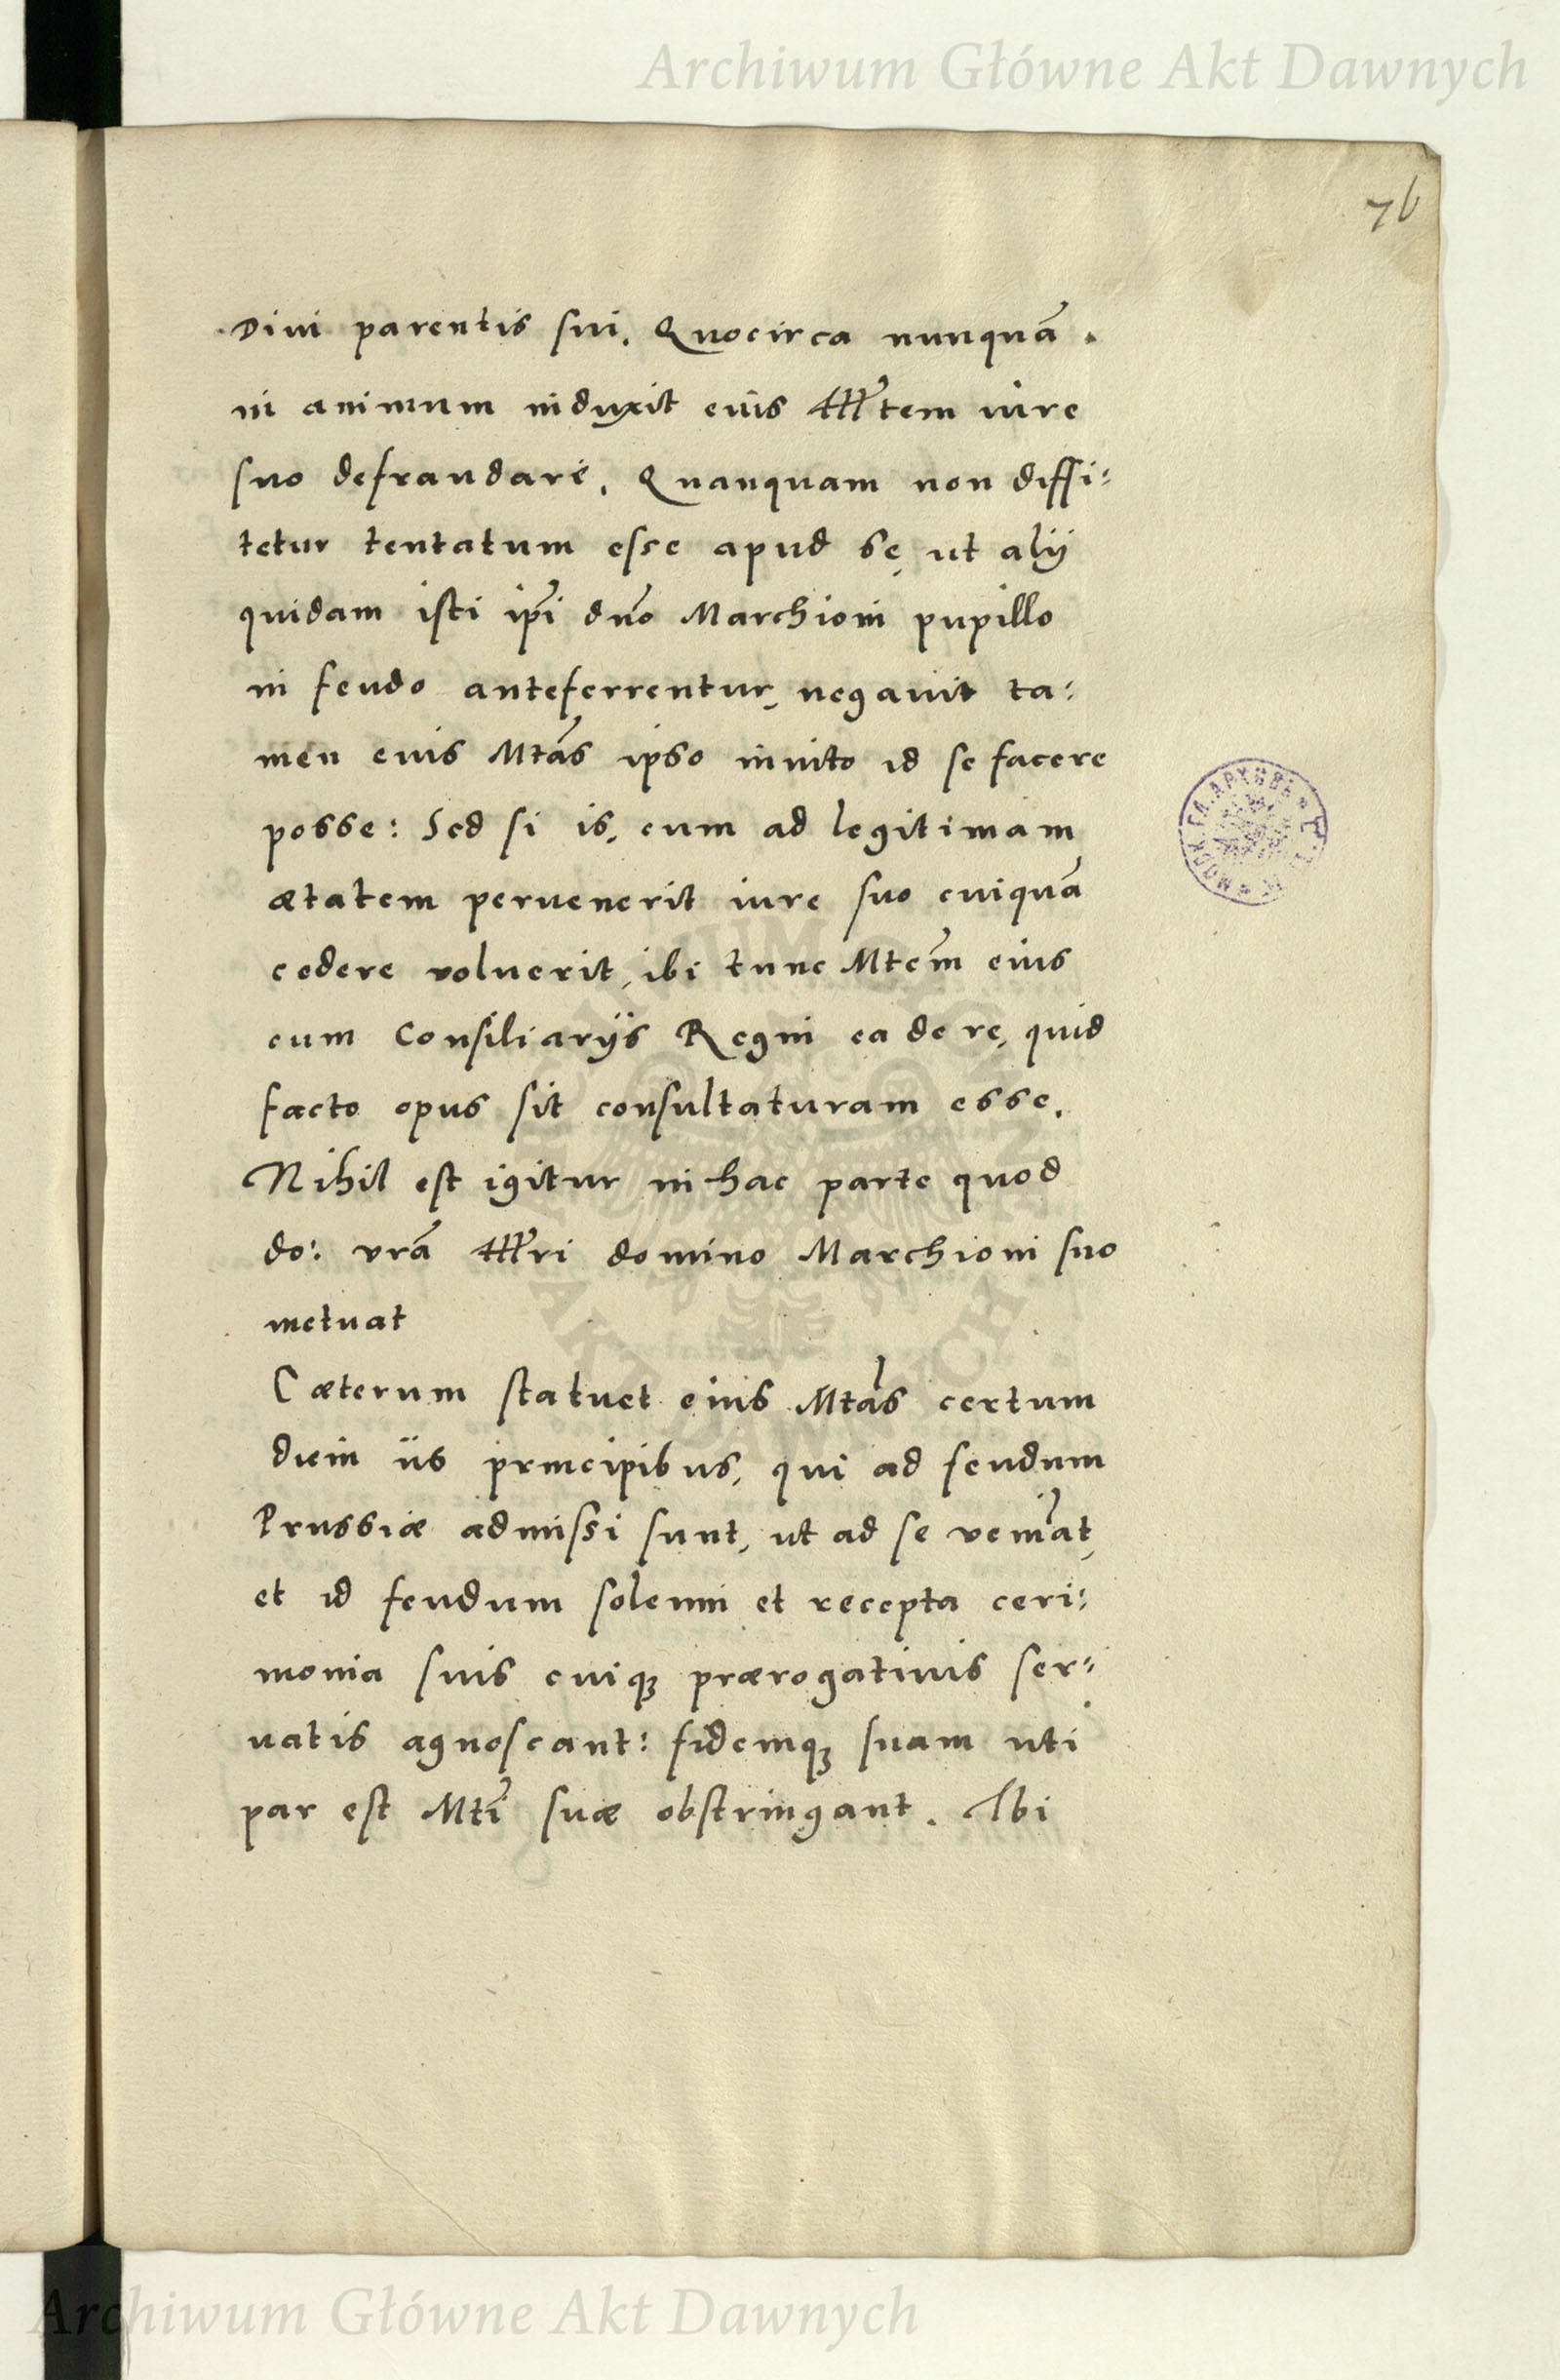 Archiwum Główne Akt Dawnych
76
Diui parentis sui. Quocirca nunquā
in animum induxit eius Illr̃tem iure
suo defraudare. Quanquam non diffi:
tetur tentatum esse apud se, ut alij
quidam isti ip̃i dño Marchioni pupillo
in feudo anteferrentur, negauit ta:
men eius Mtãs ipso inuito id se facere
posse: Sed si is, cum ad legitimam
ætatem peruenerit iure suo cuiquã
cedere voluerit, ibi tunc Mtem̃ eius
cum Consiliarijs Regni ea de re, quid
facto opus sit consultaturam esse.
Nihil est igitur in hac parte quod
do: vrã Illr̃i domino Marchioni suo
metuat
Cæterum statuet eius Mtãs certum
diem iis principibus, qui ad feudum
Prussiæ admissi sunt, ut ad se veniãt,
et id feudum solemni et recepta ceri:
monia suis cuiqꝫ prærogatiuis ser:
uatis agnoscant: fidemqꝫ suam uti
par est Mtĩ suæ obstringant. Ibi
Archiwum Główne Akt Dawnych